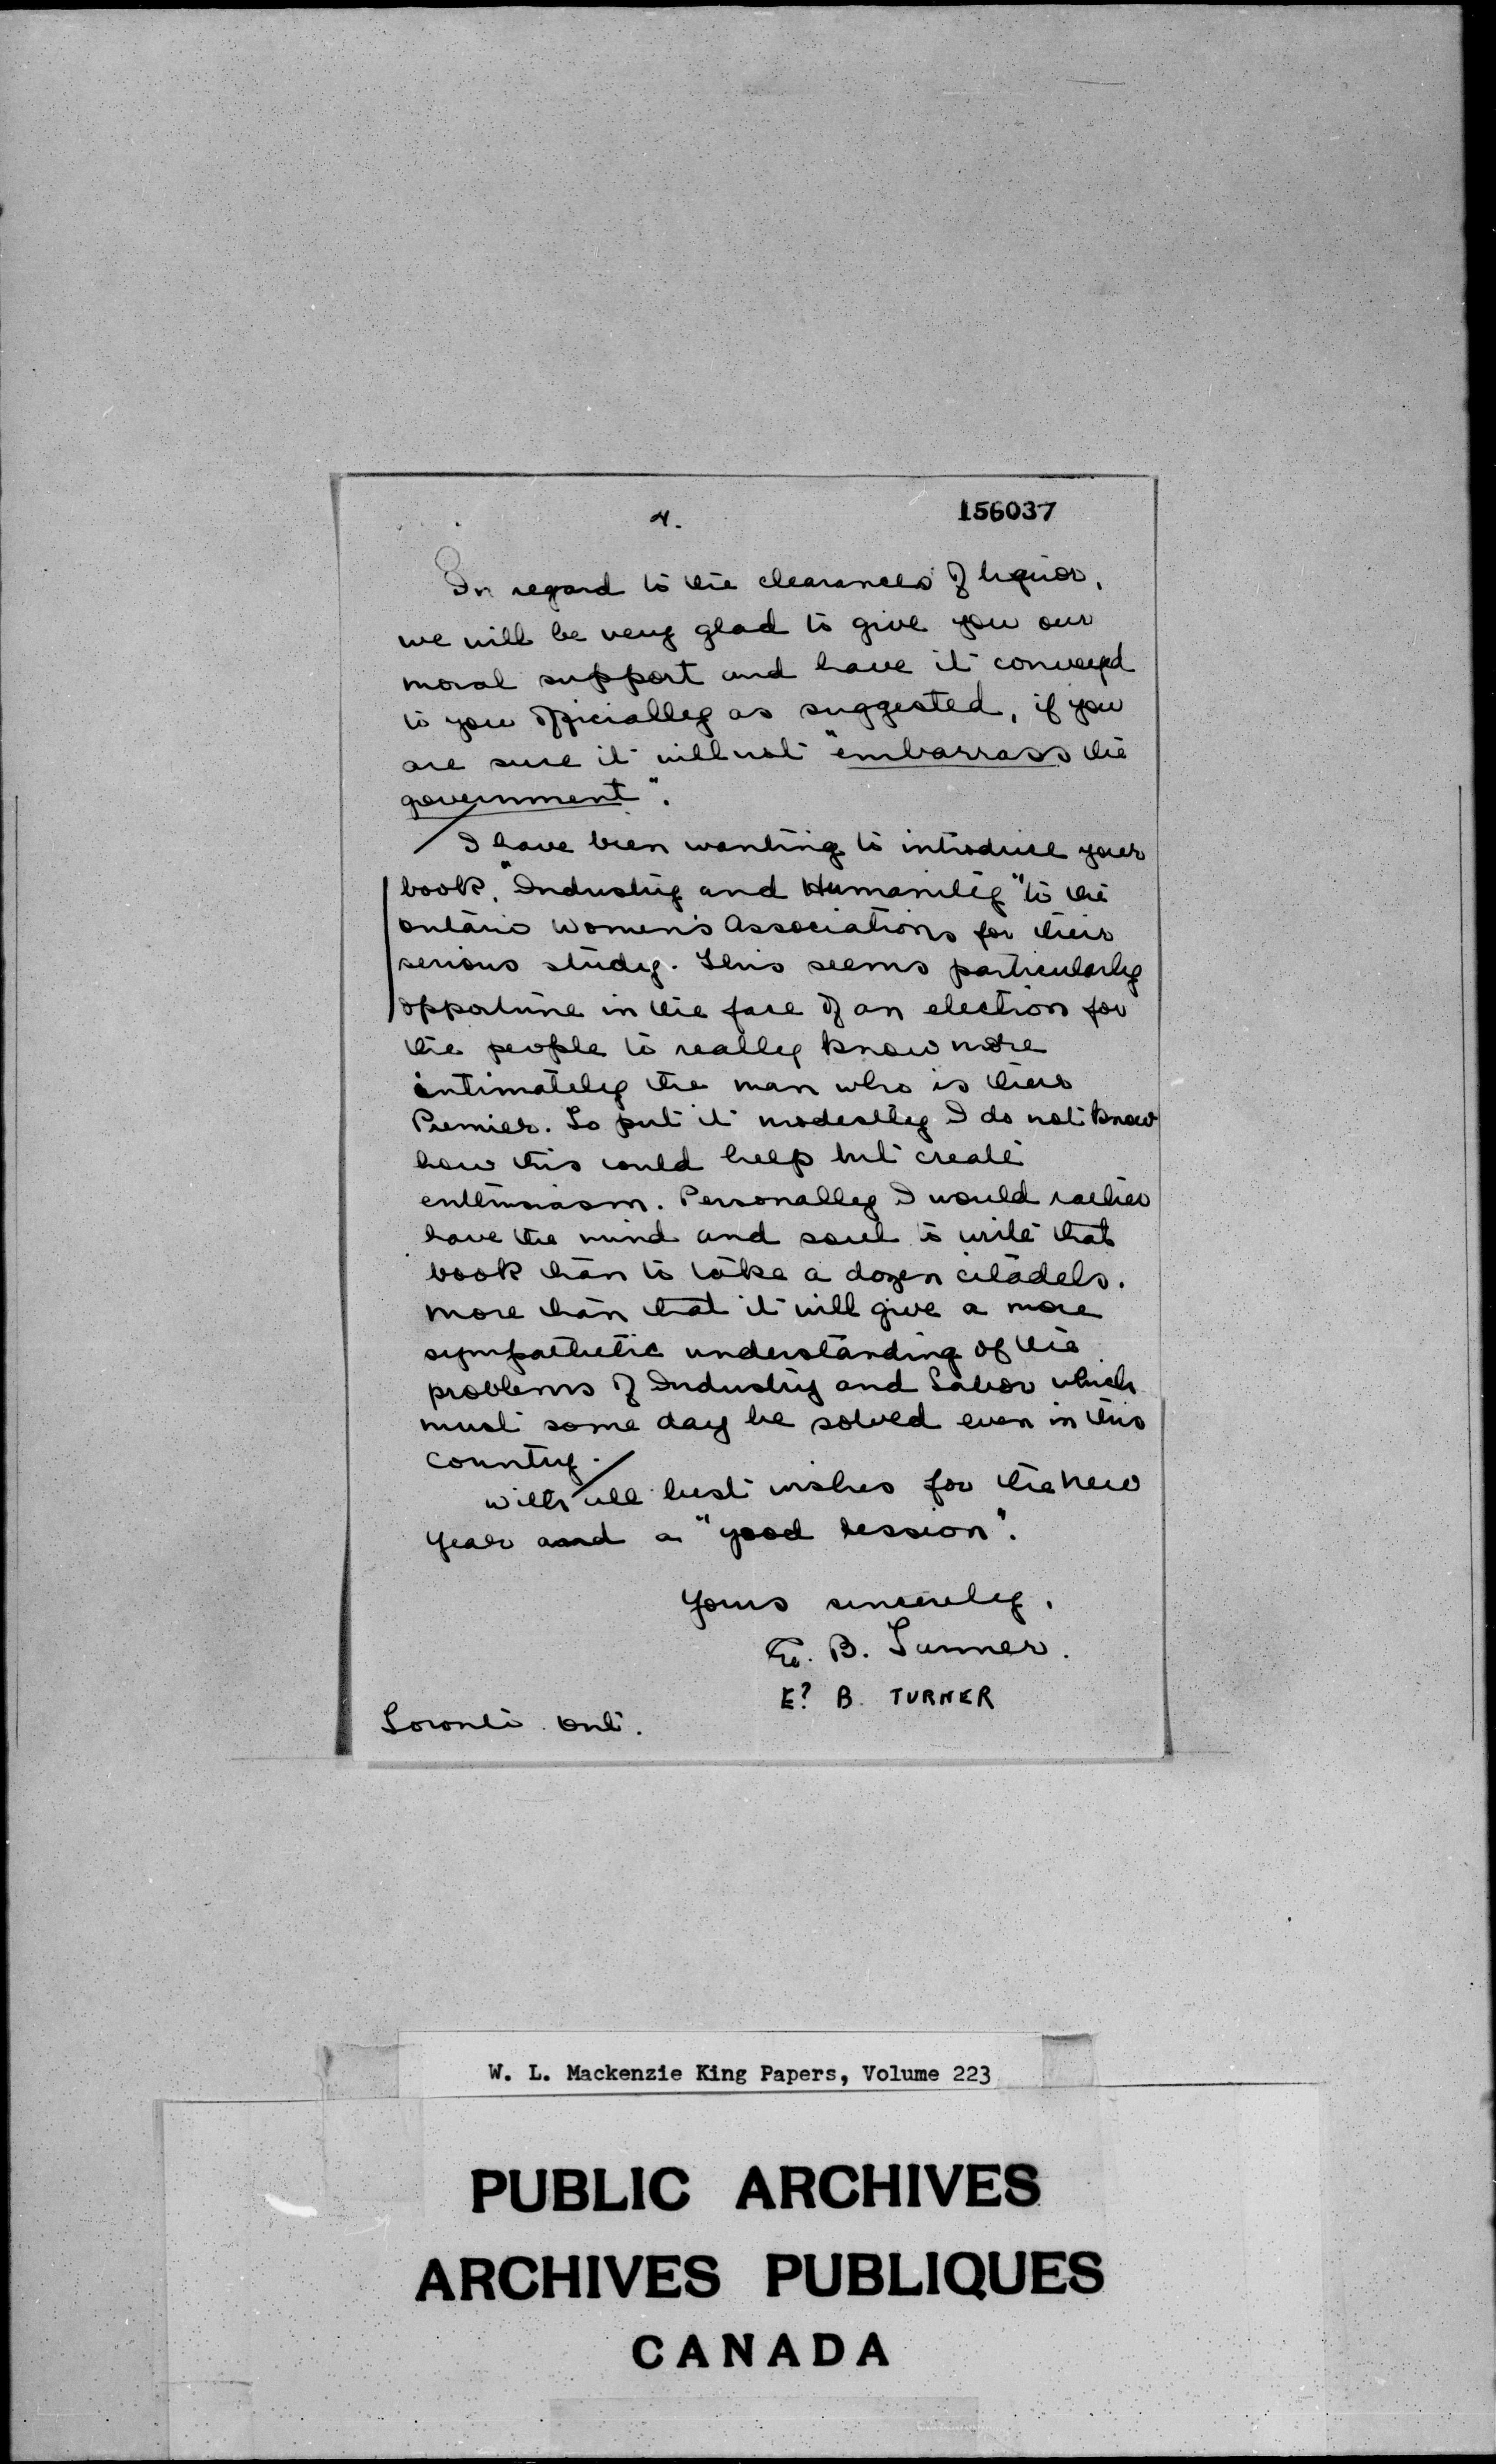 4.
156037
In regard to the clearances of liquor,
we will be very glad to give you our
moral support and have it conveyed
to you officially as suggested, if you
are sure it will not "embarrass the
government".
I have been wanting to introduce your
book, "Industry and Humanity" to the
Ontario Women's Associations for their
serious study. This seems particularly
opportune in the face of an election for
the people to really know more
intimately the man who is their
Premier. To put it modestly I do not know
how this could help but create
enthusiasm. Personally I would rather
have the mind and soul to write that
book than to take a dozen citadels.
More than that it will give a more
sympathetic understanding of the
problems of Industry and Labor which
must some day be solved even in this
country.
With all best wishes for the New
Year and a "good session".
Yours sincerely,
E. B. Turner.
E? B. TURNER
Toronto. Ont.
W. L. Mackenzie King Papers, Volume 223
PUBLIC ARCHIVES
ARCHIVES PUBLIQUES
CANADA